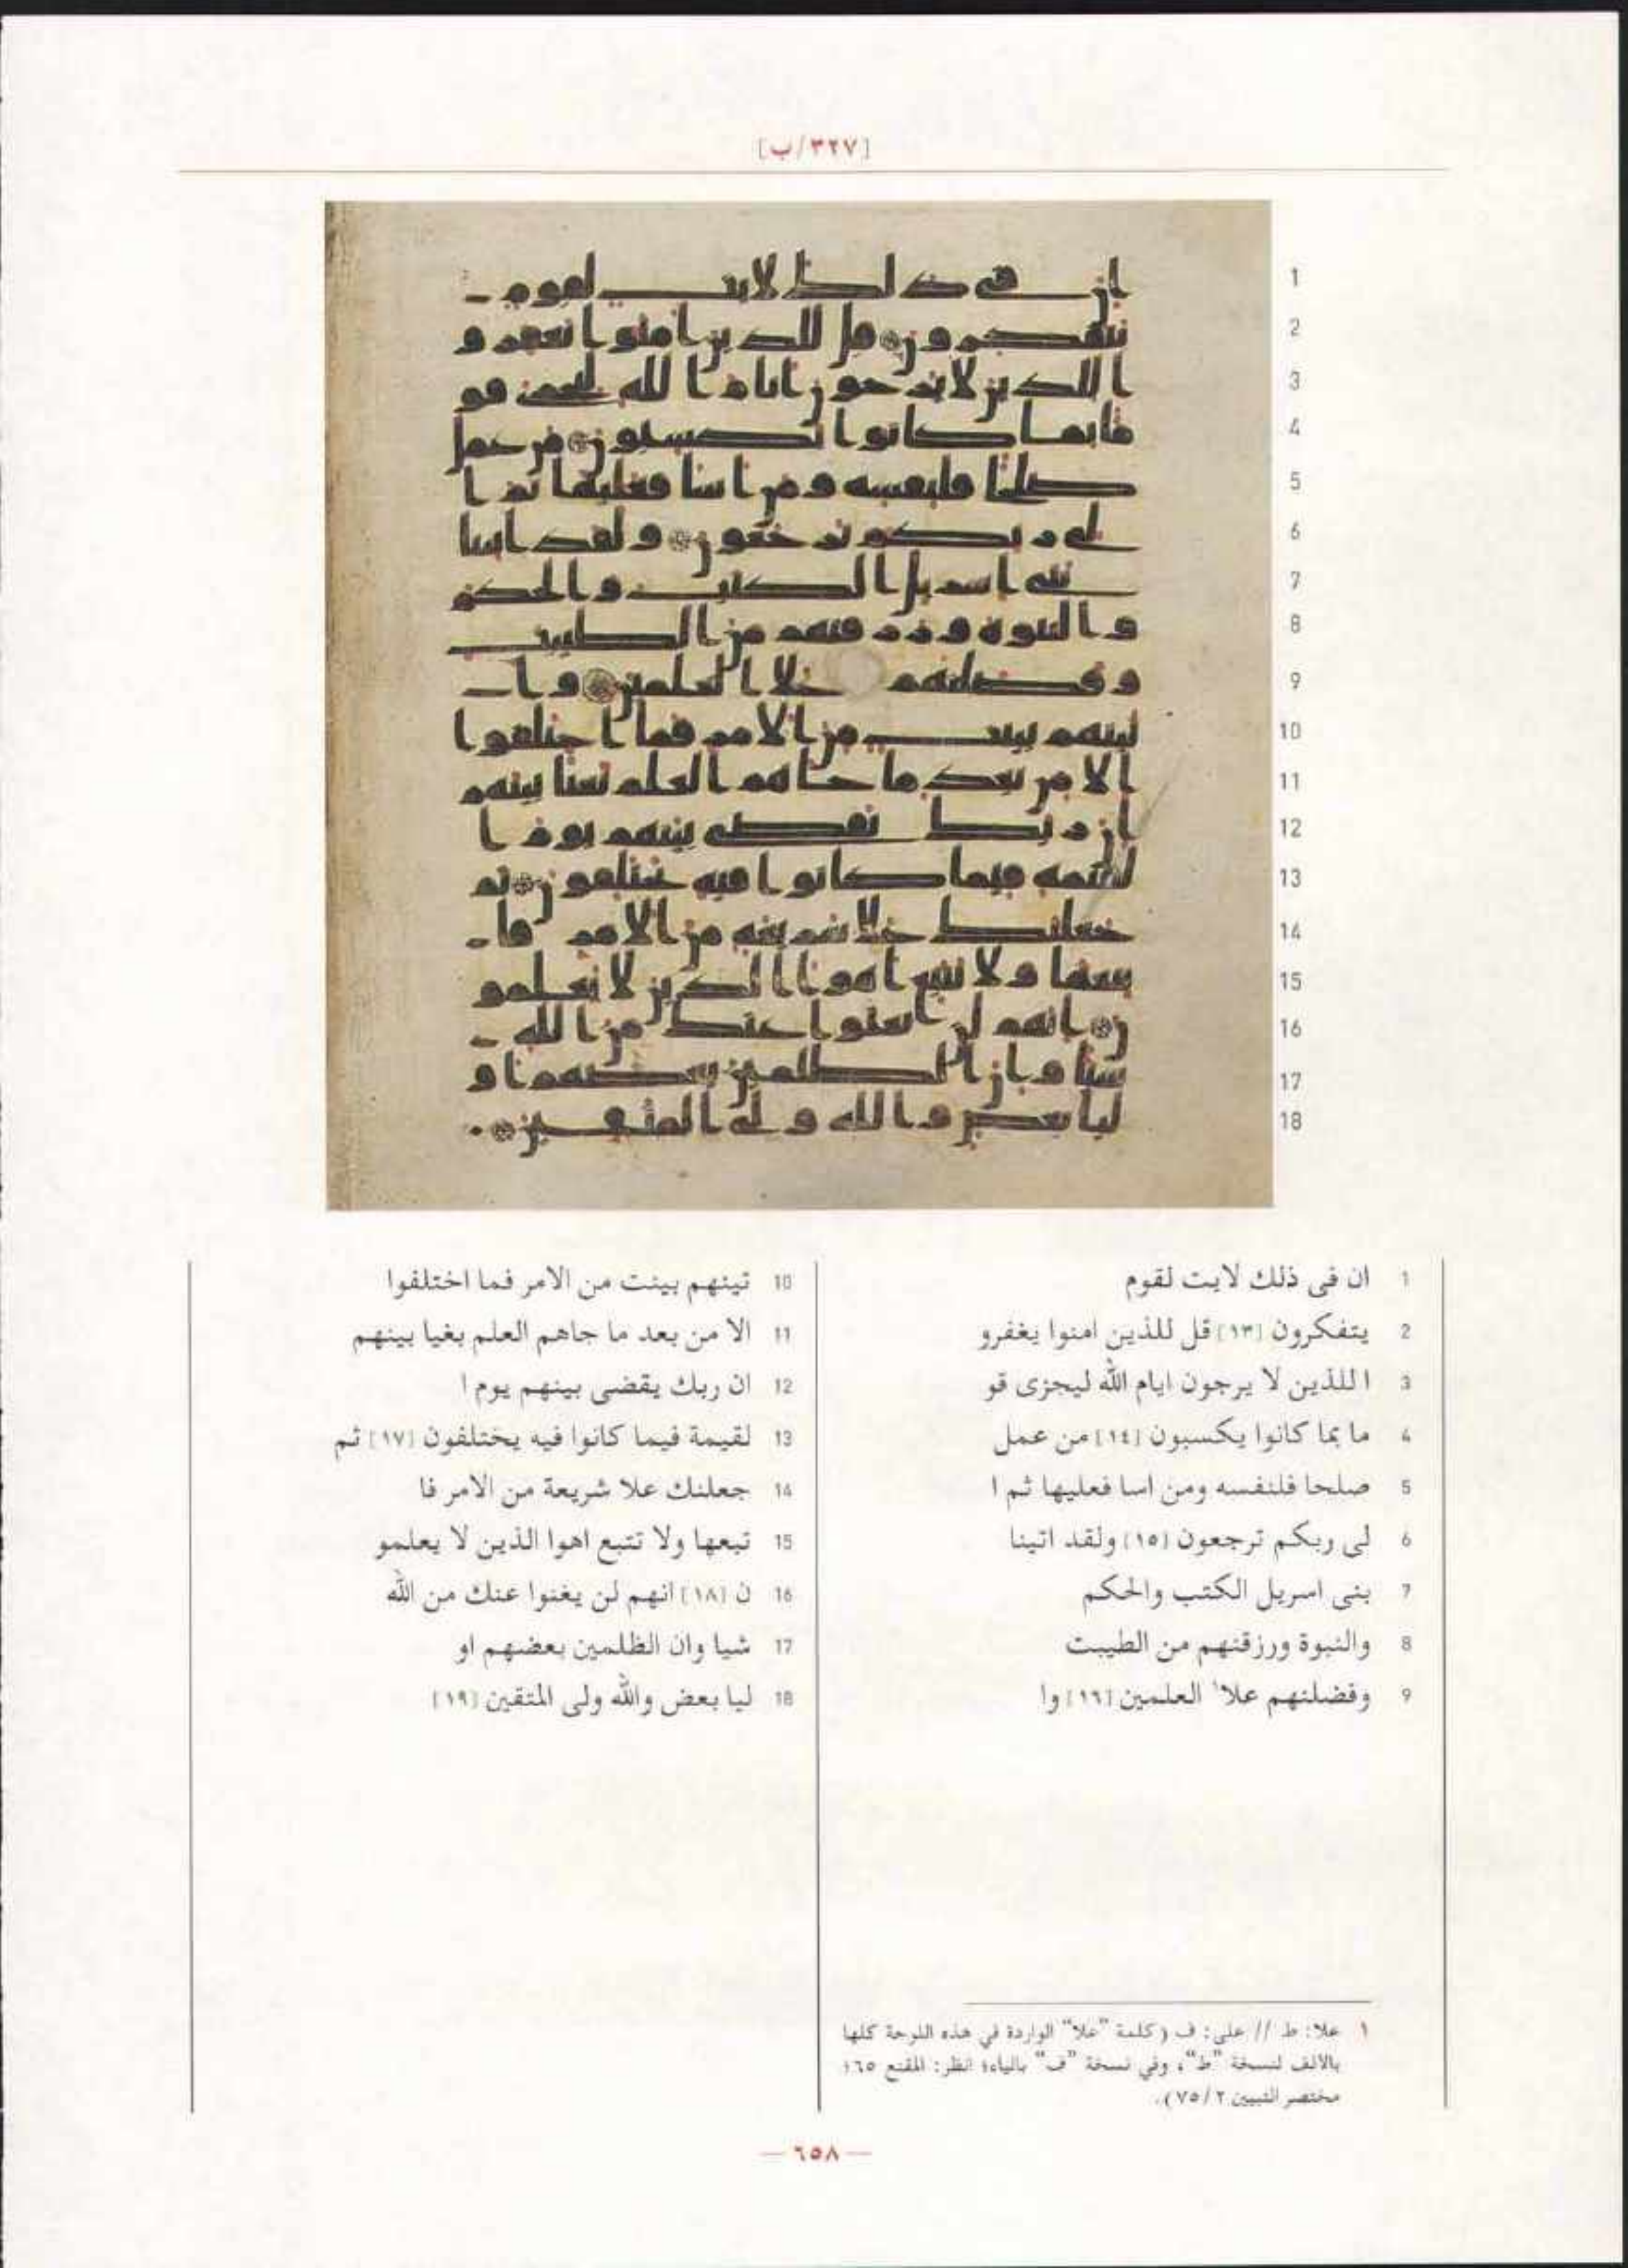 [٣٢٧/ب]
1 ان فى ذلك لايت لقوم
2 يتفكرون [١٣] قل للذين امنوا يغفرو
3 ا للذين لا يرجون ايام الله ليجزى قو
4 ما بما كانوا يكسبون [١٤] من عمل
5 صلحا فلنفسه ومن اسا فعليها ثم ا
6 لى ربكم ترجعون [١٥] ولقد اتينا
7 بنى اسريل الكتب والحكم
8 والنبوة ورزقنهم من الطيبت
9 وفضلنهم علا١ العلمين [١٦] وا
10 تينهم بينت من الامر فما اختلفوا
11 الا من بعد ما جاهم العلم بغيا بينهم
12 ان ربك يقضى بينهم يوم ا
13 لقيمة فيما كانوا فيه يختلفون [١٧] ثم
14 جعلنك علا شريعة من الامر فا
15 تبعها ولا تتبع اهوا الذين لا يعلمو
16 ن [١٨] انهم لن يغنوا عنك من الله
17 شيا وان الظلمين بعضهم او
18 ليا بعض والله ولى المتقين [١٩]
١ علا: ط // على: ف (كلمة "علا" الواردة في هذه اللوحة كلها
بالالف لنسخة "ط"، وفي نسخة "ف" بالياء؛ انظر: المقنع ٦٥؛
مختصر التبيين ٢/٧٥).
— ٦٥٨ —